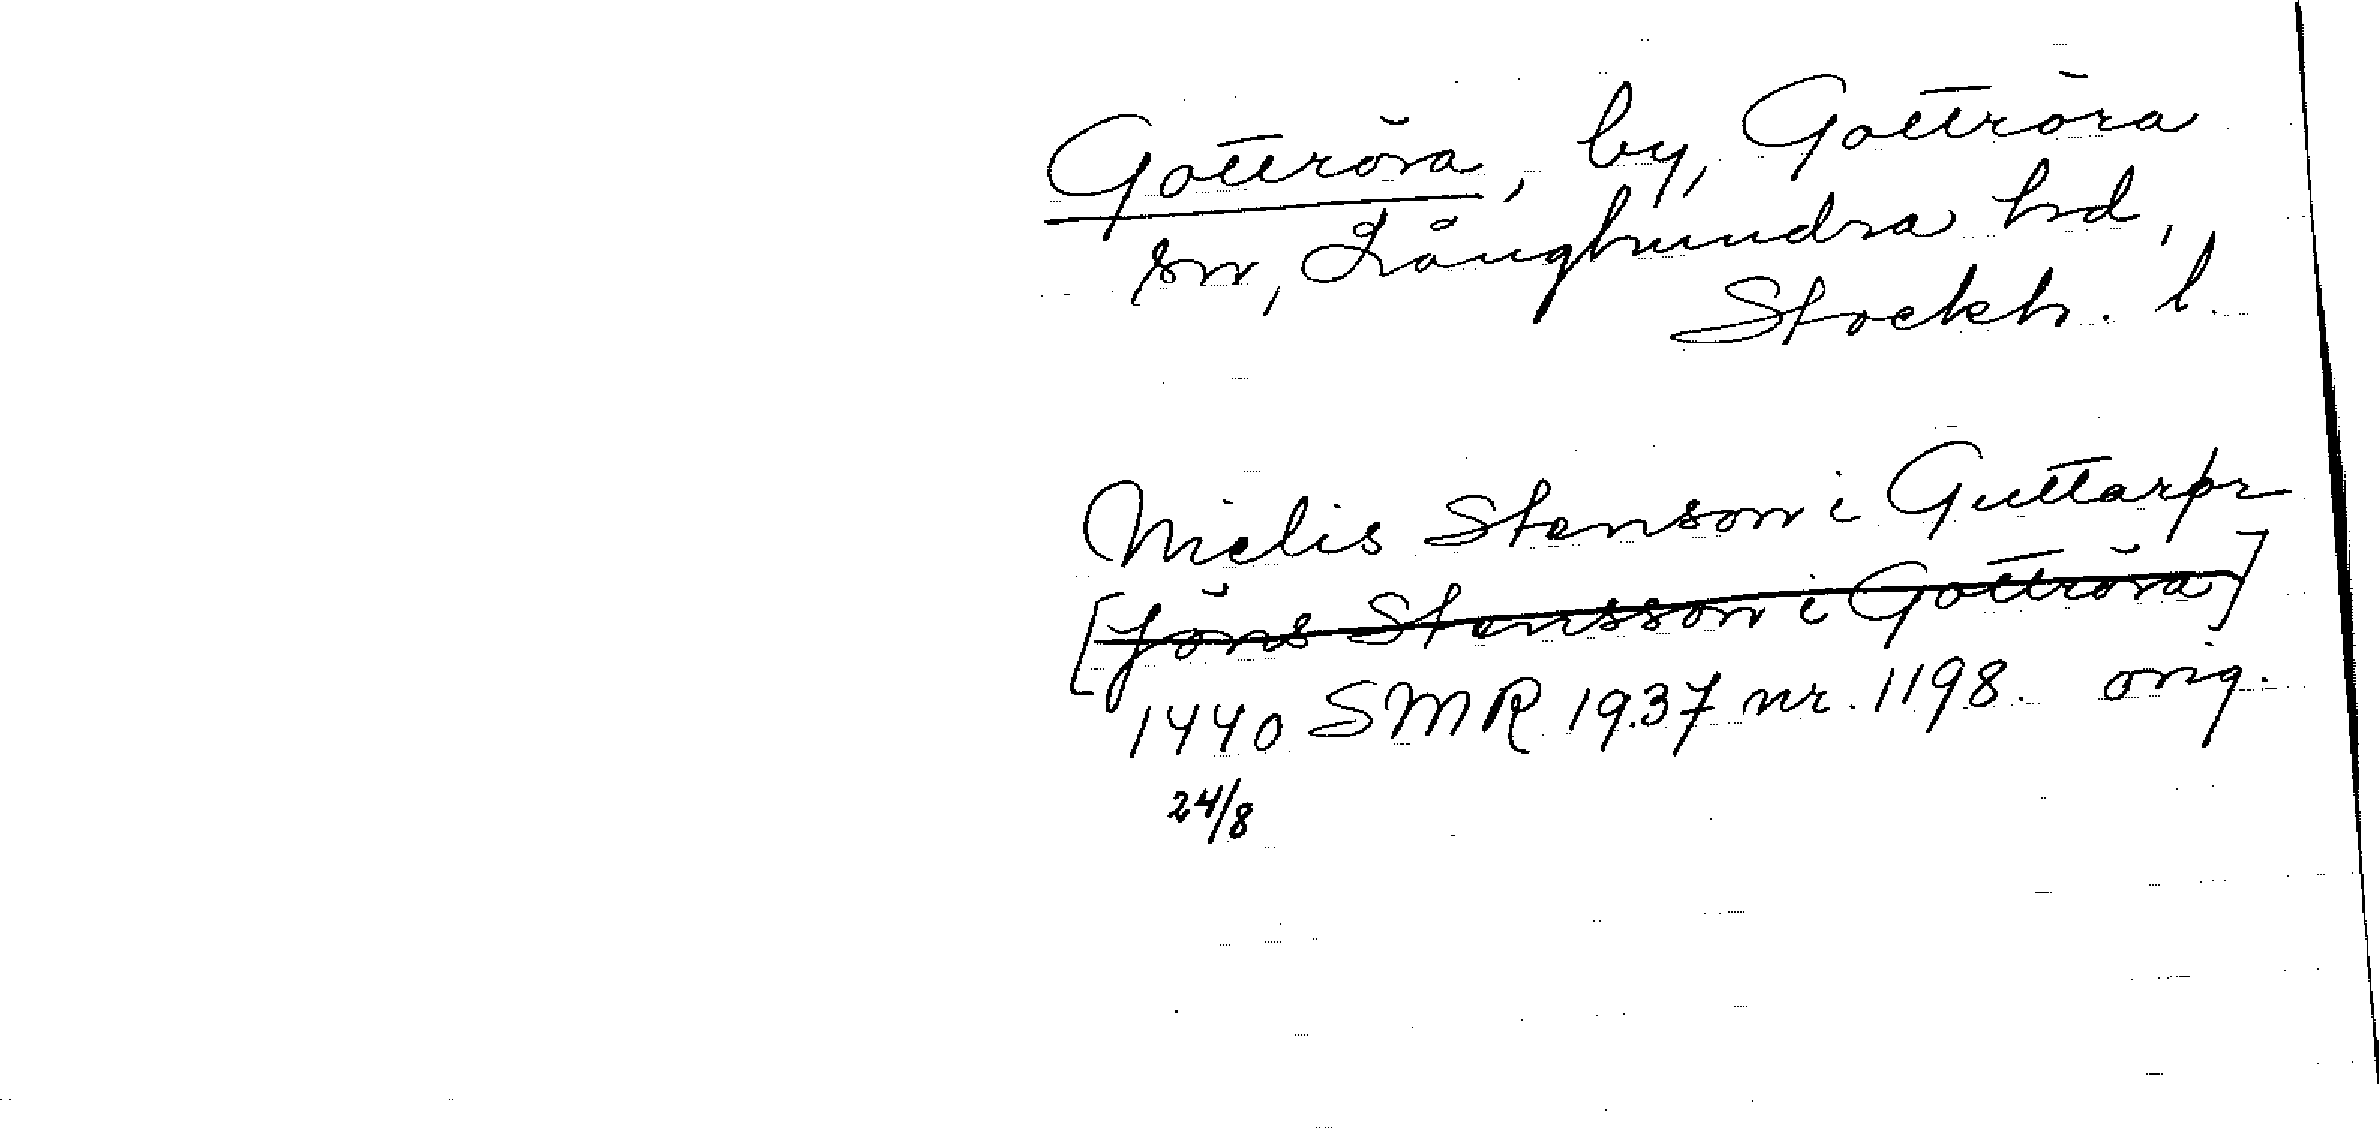 Gottröra, by, Gottröra
sn, Långhundra hd,
Stockh. l.
Nielis Stenson i Guttarør
[Jöns Stensson i Gottröra]
1440 SMR 1937 nr. 1198 orig.
24/8